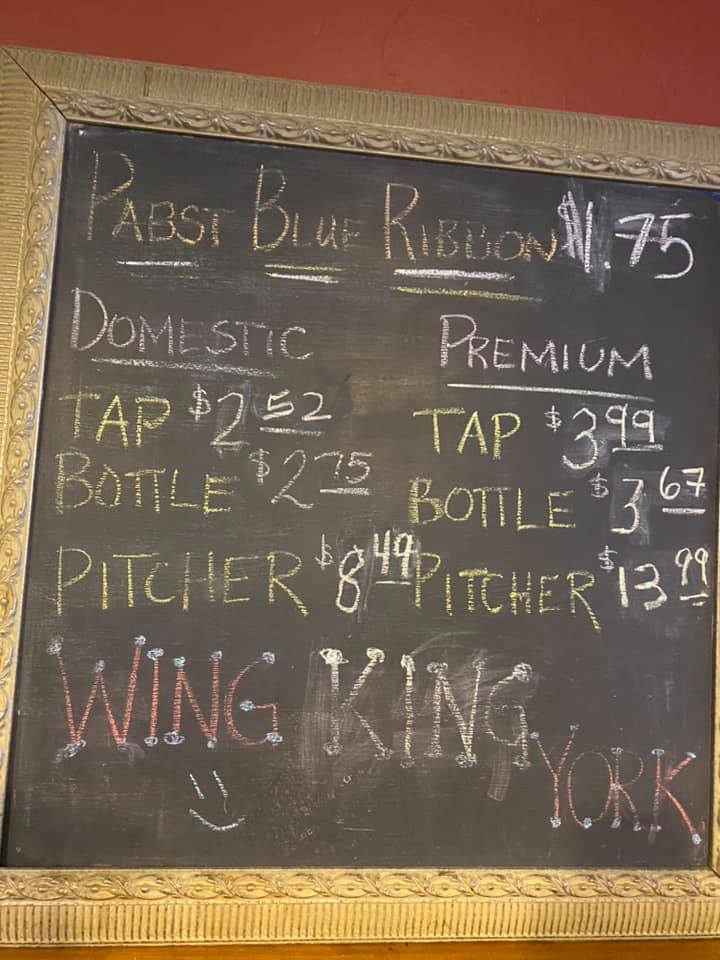 PABST BLUE RIBBON $1.75
DOMESTIC
TAP $2 52
BOTTLE $2 75
PITCHER $8 49
PREMIUM
TAP $3 99
BOTTLE $3 67
PITCHER $13 99
WING KING
YORK